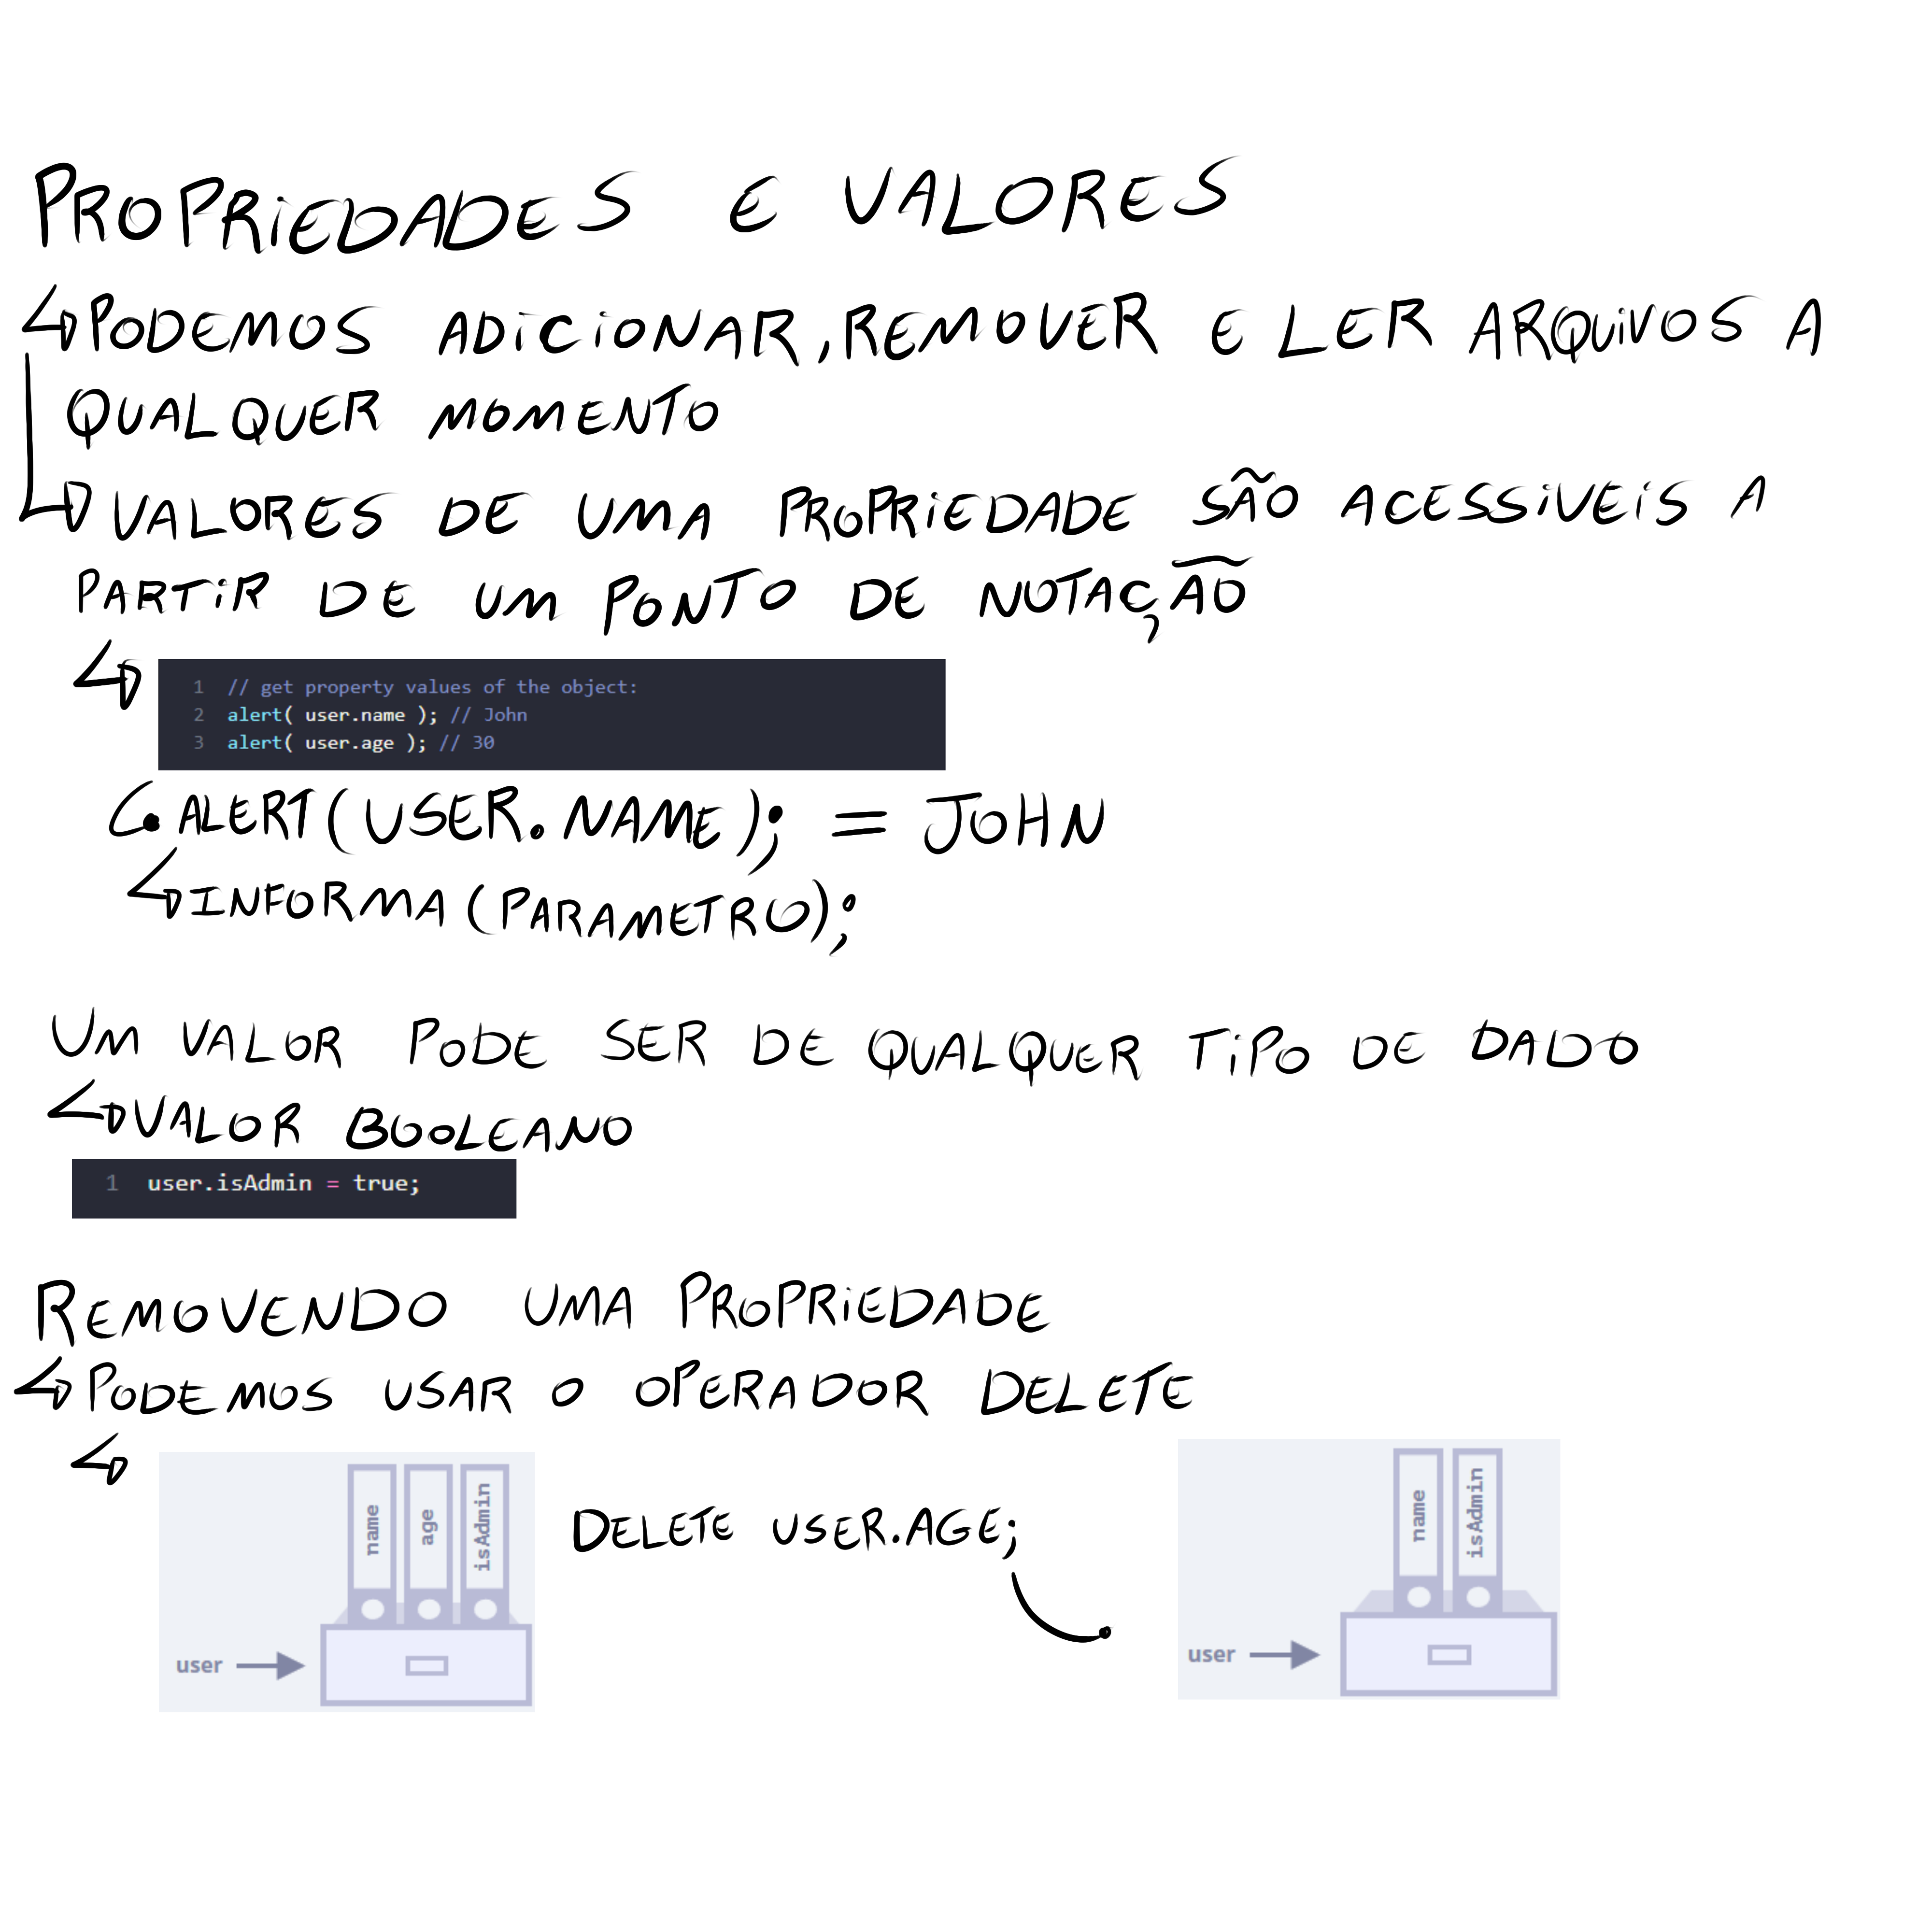 PROPRIEDADES E VALORES
PODEMOS ADICIONAR, REMOVER E LER ARQUIVOS A
QUALQUER MOMENTO
VALORES DE UMA PROPRIEDADE SÃO ACESSIVEIS A
PARTIR DE UM PONTO DE NOTAÇÃO
1 // get property values of the object:
2 alert( user.name ); // John
3 alert( user.age ); // 30
ALERT(USER.NAME); = JOHN
INFORMA(PARAMETRO);
UM VALOR PODE SER DE QUALQUER TIPO DE DADO
VALOR BOOLEANO
1 user.isAdmin = true;
REMOVENDO UMA PROPRIEDADE
PODEMOS USAR O OPERADOR DELETE
name
age
isAdmin
user
DELETE USER.AGE;
name
isAdmin
user